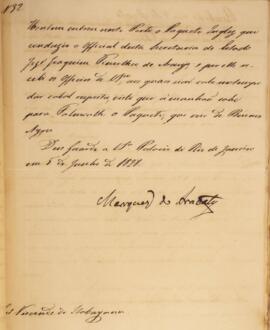 Nº 32
Hontem entrou neste Porto o Paquete Inglez que
conduzio o Official desta Secretaria de Estado
José Joaquim Timotheo de Araujo, e por elle re-
cebi os Officios de V. aos quaes
dar cabal resposta, visto que á manhãa sahe
para Falmouth o Paquete, que veio de Buenos
Ayres
Deos Guarde a V. Palacio do Rio de Janeiro
em 5 de Junho de 1828.
Marquez do Aracaty
Visconde de Itabayana